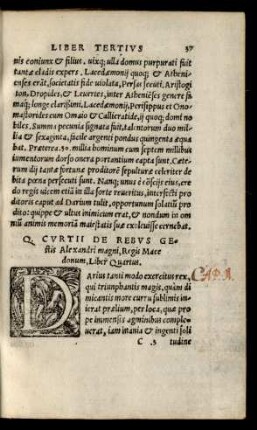 LIBER TERTIVS 37
nis coniunx & filius. uixq; ulla domus purpurati fuit
tantæ cladis expers. Lacedæmonij quoq; & Atheni-
enses erãt, societatis fide uiolata, Persas secuti. Aristogi
ton, Dropides, & Leuertes, inter Atheniẽses genere fa
maq; longe clarissimi. Lacedæmonij, Persippus et Ono
mastorides cum Omaio & Callicratide, ij quoq; domi no
biles. Summa pecunia signata fuit, talentorum duo mil-
lia & sexaginta, facti argenti pondus quingenta æqua
bat. Præterea .30. millia hominum cum septem millibus
iumentorum dorso onera portantium capta sunt. Cæte-
rum dij tantæ fortunæ proditorē sepulturæ celeriter de
bita pœna persecuti sunt. Nanq; unus è cōscijs eius, cre
do regis uicem etiã in illa sorte reueritus, interfecti pro
ditoris caput ad Darium tulit, opportunum solatiũ pro
dito: quippe & ultus inimicum erat, & nondum in om
niũ animis memoriã maiestatis suæ exoluisse cernebat.
Q CVRTII DE REBVS GE-
stis Alexandri magni, Regis Mace
donum, Liber Quartus.
Darius tanti modo exercitus rex, CAP. I.
qui triumphantis magis, quàm di
micantis more curru sublimis inie
rat prælium, per loca, quæ pro
pe immensis agminibus comple-
uerat, iam inania & ingenti soli
C 5 tudine